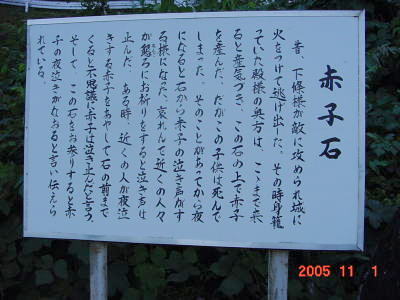 赤子石
昔、下條様が敵に攻められ城に
火をつけて逃げ出した。その時身籠
っていた殿様の奥方は、ここまで来
ると産気づき、この石の上で赤子
を産んだ。だがこの子供は死んで
しまった。そのことがあってから夜
になると石から赤子の泣き声がす
る様になった。哀れんで近くの人々
が懇ろにお祈りをすると泣き声は
止んだ。ある時、近くの人が夜泣
きする赤子をあやして石の前まで
くると不思議に赤子は泣き止んだと言う。
そして、この石をお参りすると赤
子の夜泣きがなおると言い伝えら
れている。
2005 11 1